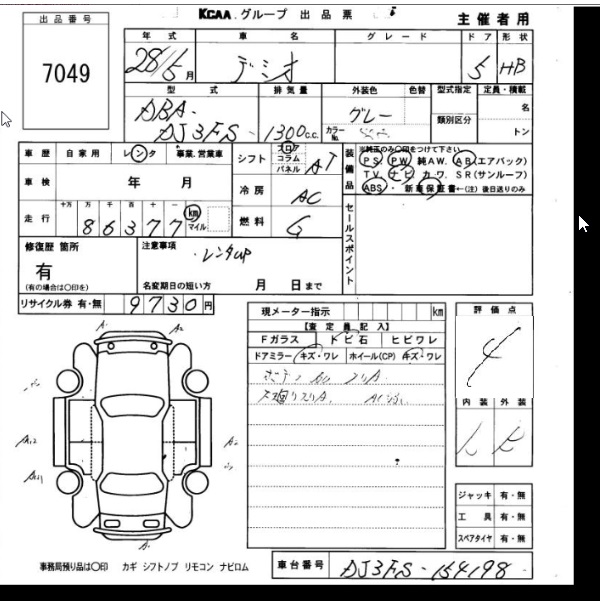 KCAA グループ 出品票
主催者用
出品番号
7049
年式 車名 グレード ドア 形状
28/5月 デミオ 5 HB
型式 排気量 外装色 色替 型式指定 定員・積載
DBA-
DJ3FS- 1300c.c. グレー
カラーNo.
類別区分
名
トン
車歴 自家用 レンタ 事業、営業車
車検 年 月
走行 十万 万 千 百 十 一
86377 km マイル
シフト フロア コラム パネル AT
冷房 AC
燃料 G
装備品
※純正のみ○印をつけて下さい
PS. PW. 純AW. AB(エアバック)
TV. ナビ. カワ. SR(サンルーフ)
ABS. 新車保証書←(注)後日送りのみ
セールスポイント
修復歴 箇所
有
(有の場合は○印を)
注意事項
・レンタUP
名変期日の短い方 月 日まで
リサイクル券 有・無 9730円
現メーター指示 km
【査定員記入】
Fガラス トビ石 ヒビワレ
ドアミラー キズ・ワレ ホイール(CP) キズ・ワレ
評価点
4
内装 外装
ジャッキ 有・無
工具 有・無
スペアタイヤ 有・無
A1 A2
A2
事務局預り品は○印 カギ シフトノブ リモコン ナビロム
車台番号 DJ3FS-154198